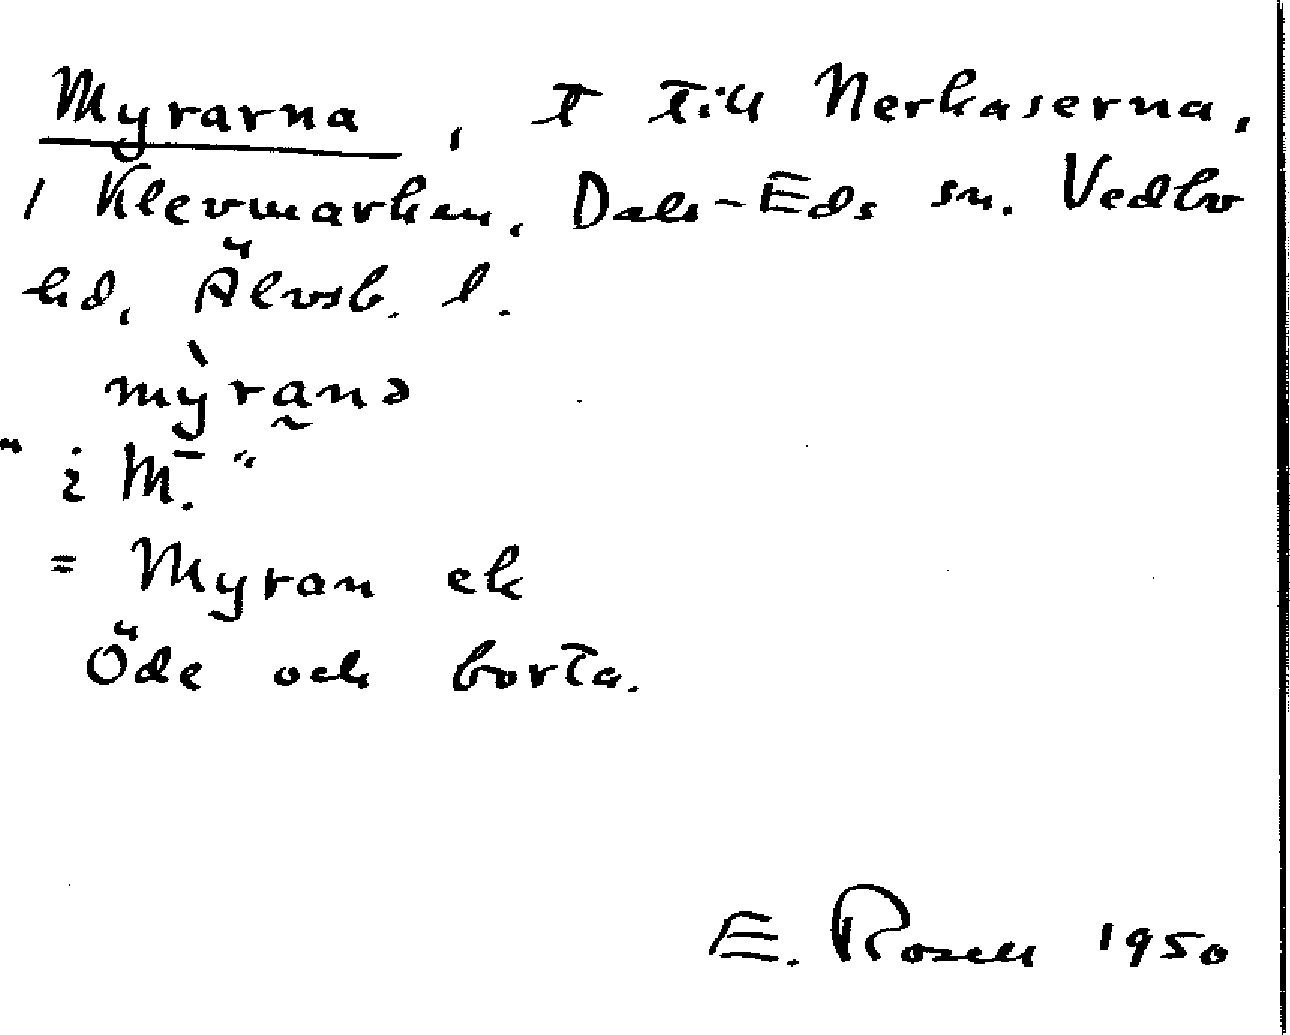 Myrarna, t till Nerkaserna,
1 Klevmarken, Dals-Eds sn. Vedbo
hd, Älvsb. l.
my̍̀ra̰nə
" i M.̄ "
= Myran ek
Öde och borta.
E. Rosell 1950